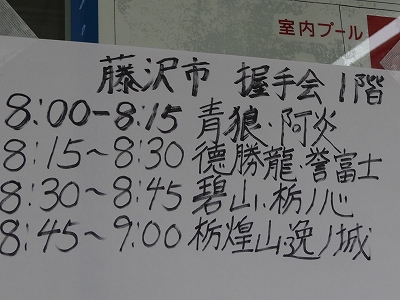 室内プール
藤沢市 握手会 1階
8:00-8:15 青狼・阿炎
8:15~8:30 徳勝龍・誉富士
8:30~8:45 碧山・栃ノ心
8:45~9:00 栃煌山・逸ノ城